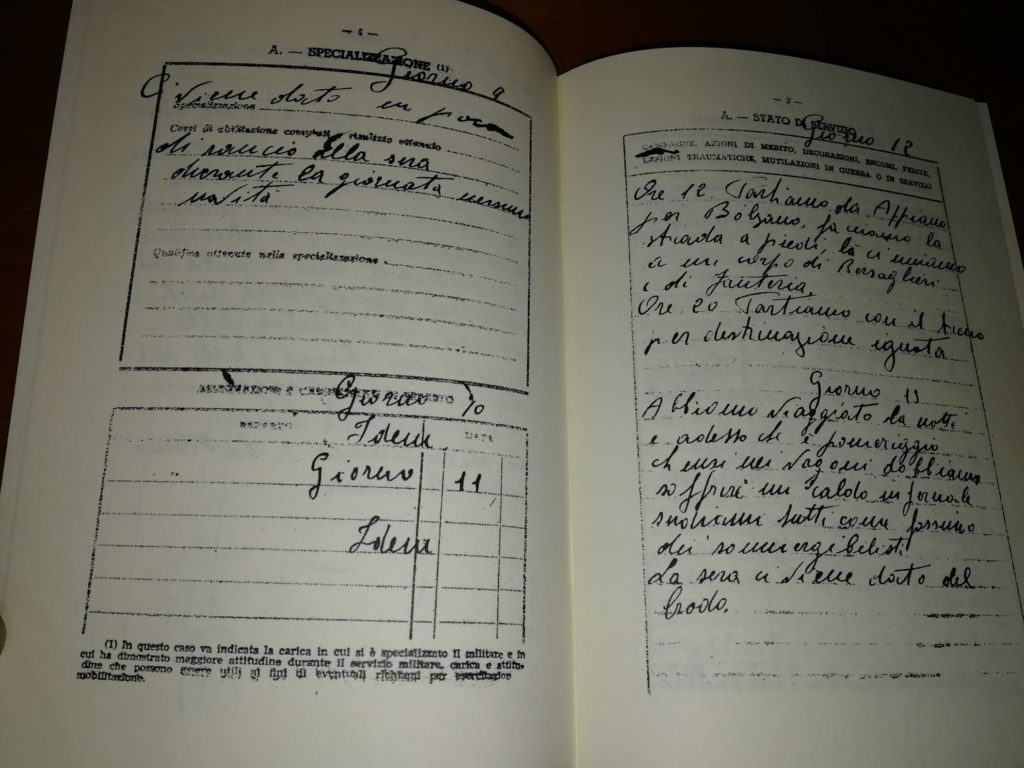 — 4 —
A. — SPECIALIZZAZIONE (1)
Giorno 9
Ci viene dato un poco
Specializzazione
Corsi di abilitazione compiuti e risultato ottenuto
di rancio alla sera
durante la giornata nessuna
novità
Qualifica ottenuta nella specializzazione
Giorno 10
Idem
DATA
Giorno 11
Idem
(1) In questo caso va indicata la carica in cui si è specializzato il militare e in
cui ha dimostrato maggiore attitudine durante il servizio militare, carica e attitu-
dine che possono essere utili ai fini di eventuali richiami per esercitazioni
mobilitazione.
— 5 —
A. — STATO DI SERVIZIO
Giorno 12
CAMPAGNE, AZIONI DI MERITO, DECORAZIONI, ENCOMI, FERITE,
LESIONI TRAUMATICHE, MUTILAZIONI IN GUERRA O IN SERVIZIO
Ore 12 Partiamo da Appiano
per Bolzano, facciamo la
strada a piedi, la ci uniamo
a un corpo di Bersaglieri
e di Fanteria
Ore 20 Partiamo con il treno
per destinazione ignota
Giorno 13
Abbiamo viaggiato la notte
e adesso che è pomeriggio
chiusi nei vagoni dobbiamo
soffrire un caldo infernale
sudiamo tutti come fossimo
dei sommergibilisti
La sera ci viene dato del
brodo.